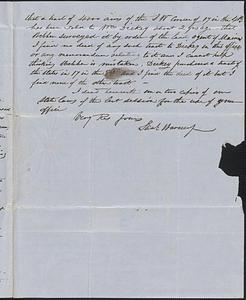 that a deed of 4000 acres of the S W Corner of 17 in the 6th
has been taken to Wm Dickey about a grudge. that
surveyed it by order of the Land Agent of Maine
I find no deed of any such tract to Dickey in this office
or any memorandum relative to it and I cannot help
thinking is mistaken, Dickey purchased a tract of
the State in 17 in the and I find the deed of it but I
find none of the other tract —
I send herewith one or two copies of our
State Laws of the last session for the use of your
office
Very Res Yours